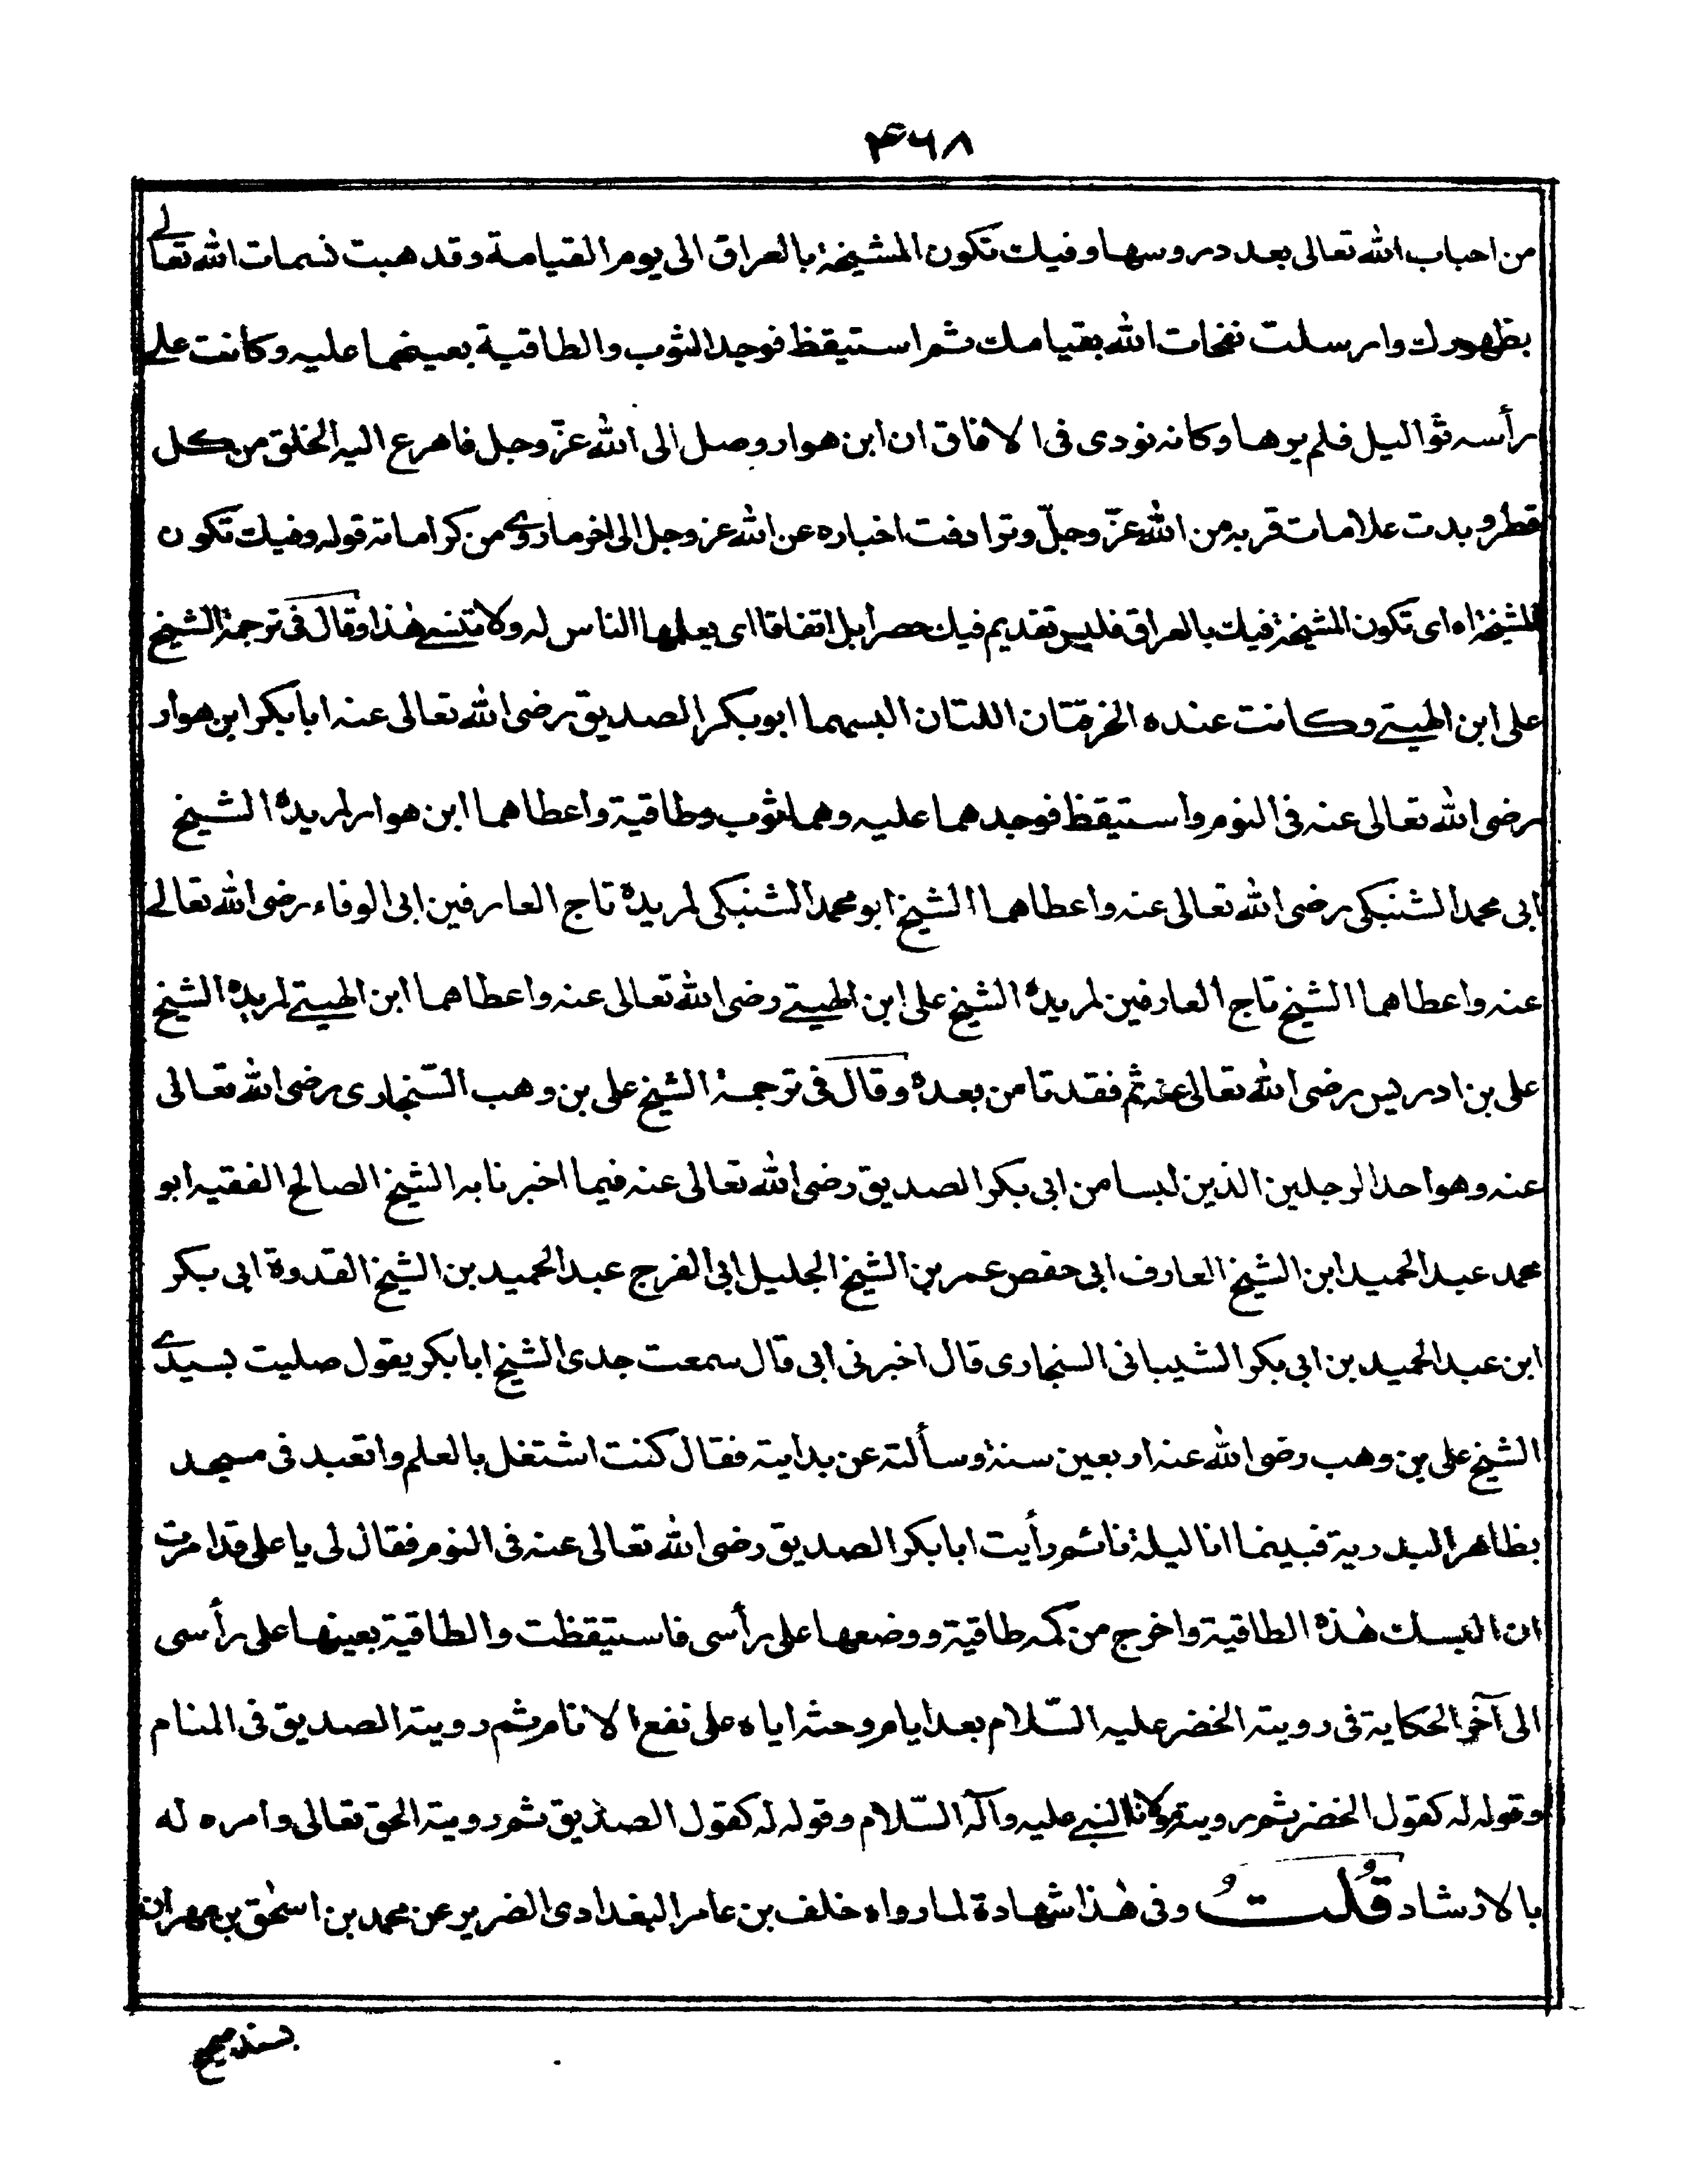 ۴۶۸
من احباب الله تعالى بعد دروسها وفيك تكون المشيخة بالعراق الى يوم القيامة وقد هبت نسمات الله تعالى
بظهورك وارسلت نفحات الله بقيامك ثم استيقظ فوجد الثوب والطاقية بعينهما عليه وكانت على
رأسه ثواليل فلم يرها وكانه نودى فى الافاق ان ابن هوار وصل الى الله عزّ وجل فاهرع اليه الخلق من كل
قطر وبدت علامات قربه من الله عزّ وجلّ وترادفت اخباره عن الله عز وجل الى اخر ما روى من كراماته قوله وفيك تكون
المشيخة اه اى تكون المشيخة فيك بالعراق فليس تقديم فيك حصرا بل اتفاقا اى يعلمها الناس له ولا تنسى هٰذا وقال فى ترجمة الشيخ
على ابن الهيتى وكانت عنده الخرقتان اللتان البسهما ابو بكر الصديق رضى الله تعالى عنه ابا بكر ابن هوار
رضى الله تعالى عنه فى النوم واستيقظ فوجدهما عليه وهما ثوب وطاقية واعطاهما ابن هوار لمريدهٗ الشيخ
ابى محمد الشنبكى رضى الله تعالى عنه واعطاهما الشيخ ابو محمد الشنبكى لمريدهٗ تاج العارفين ابى الوفاء رضى الله تعالى
عنه واعطاهما الشيخ تاج العارفين لمريدهٗ الشيخ على ابن الهيتى رضى الله تعالى عنه واعطاهما ابن الهيتى لمريدهٗ الشيخ
على بن ادريس رضى الله تعالى عنه ثم فقدتا من بعدهٗ وقال فى ترجمة الشيخ على بن وهب السّنجارى رضى الله تعالى
عنه وهو احد الرجلين الذين لبسا من ابى بكر الصديق رضى الله تعالى عنه فيما اخبرنا به الشيخ الصالح الفقيه ابو
محمد عبد الحميد ابن الشيخ العارف ابى حفص عمر بن الشيخ الجليل ابى الفرج عبد الحميد بن الشيخ القدوة ابى بكر
ابن عبد الحميد بن ابى بكر الشيبانى السنجارى قال اخبرنى ابى قال سمعت جدى الشيخ ابا بكر يقول صليت بسيدى
الشيخ على بن وهب رضى الله عنه اربعين سنة وسألته عن بدايته فقال كنت اشتغل بالعلم واتعبد فى مسجد
بظاهر البدرية فبينما انا ليلة نائم رأيت ابا بكر الصديق رضى الله تعالى عنه فى النوم فقال لى يا على قد امرت
ان البسك هٰذهٖ الطاقية واخرج من كمه طاقية ووضعها على رأسى فاستيقظت والطاقية بعينها على رأسى
الى آخر الحكاية فى روية الخضر عليه السّلام بعد ايام وحثه اياه على نفع الانام ثم روية الصديق فى المنام
وقوله له كقول الخضر ثم روية مولانا النبى عليه وآله السّلام وقوله له كقول الصدّيق ثم روية الحق تعالى وامره له
بالارشاد قُلتُ وفى هٰذا شهادة لما رواه خلف بن عامر البغدادى الضرير عن محمد بن اسحٰق بن مهران
بسند صحيح